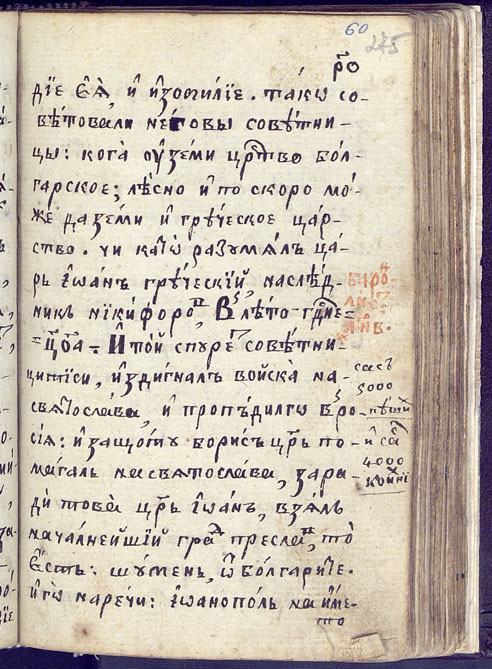 60
275
рѻ
дїе єѧ̀, и҆ и҆зоби́лїе. та́кѡ со-
вѣ́товали не́говы совѣ́тни-
цы: кога̀ ᲂу҆зе́ми црⷭ҇тво бо́л-
гарское; лѣ́сно и҆ по ско́ро мо́-
же да зе́ми и҆ гре́ческое ца́р-
ство. чи като̀ разумѧ́лъ ца́-
рь і҆ѡа́нъ гре́ческїй, наслѣ́д-
никъ никифоро, В лѣ́то гдⷭ҇не
=цо҃а= И то́й спуре совѣ́тни-
цитїси, и҆здигна́лъ войска̀ на-
свѧтосла́ва, и҆ пропѣ́дилгѡ
сїѧ: и҆ защо́то бори́съ цр҃ь по-
мага́лъ на свѧтосла́ва, зара-
дѝ това̀ цр҃ь і҆ѡа́нъ, взѧ́лъ
нача́лнейшїй гра́д пресла, то̀
є҆́сть: шу́менъ, ѿ бо́лгарите.
и҆гѡ̀ наречѝ: і҆ѡанопо́ль на и҆́ме-
то
съсъ
5000
пѣшїи
и са
4000
ко́нни